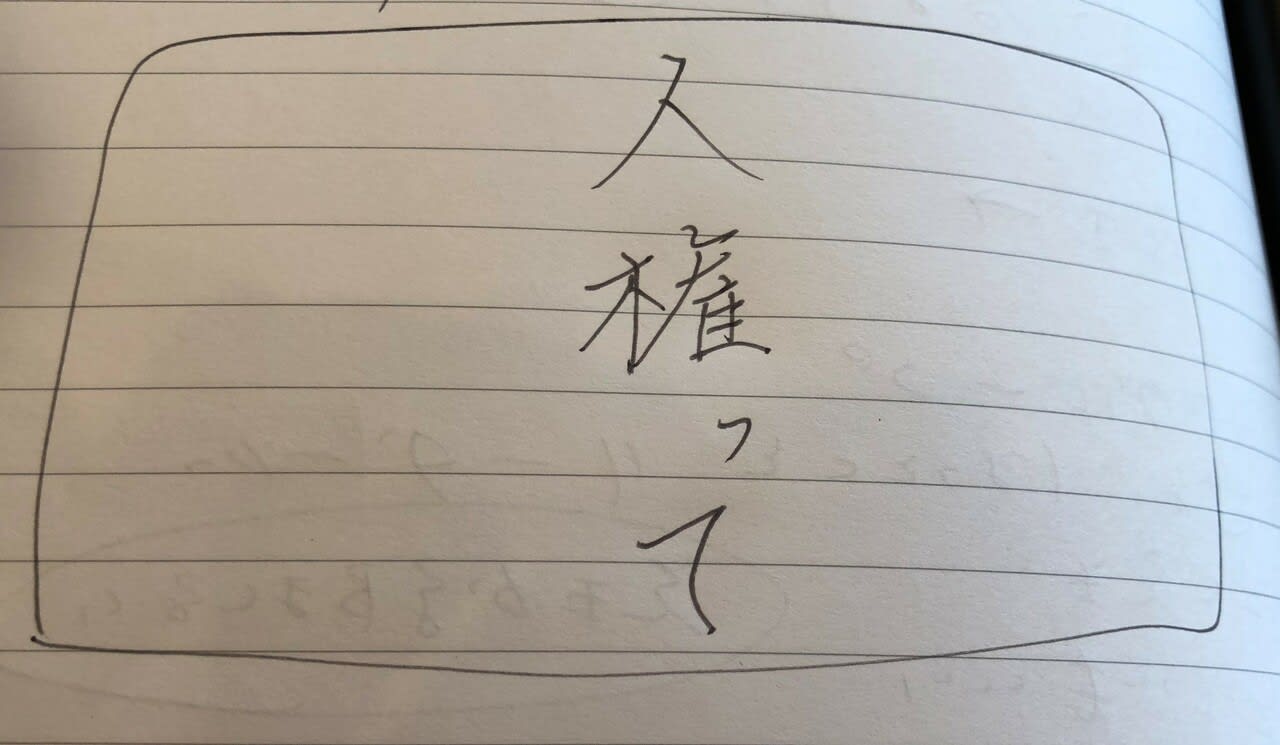 人権って